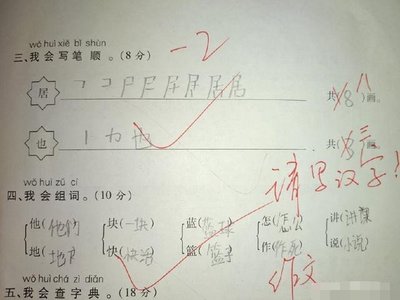 wǒ huì xiě bǐ shùn
三、我会写笔顺。(8分) -2
居 共(8)画。 八
也 共(3)画。 三
wǒ huì zǔ cí
四、我会组词。(10分) 请写汉字!
他(他们) 块(一块) 蓝(蓝球) 怎(怎么) 讲(讲课)
地(地方) 快(快治) 篮(篮子) 作(作死) 说(小说)
作文
wǒ huì chá zì diǎn
五、我会查字典。(18分)